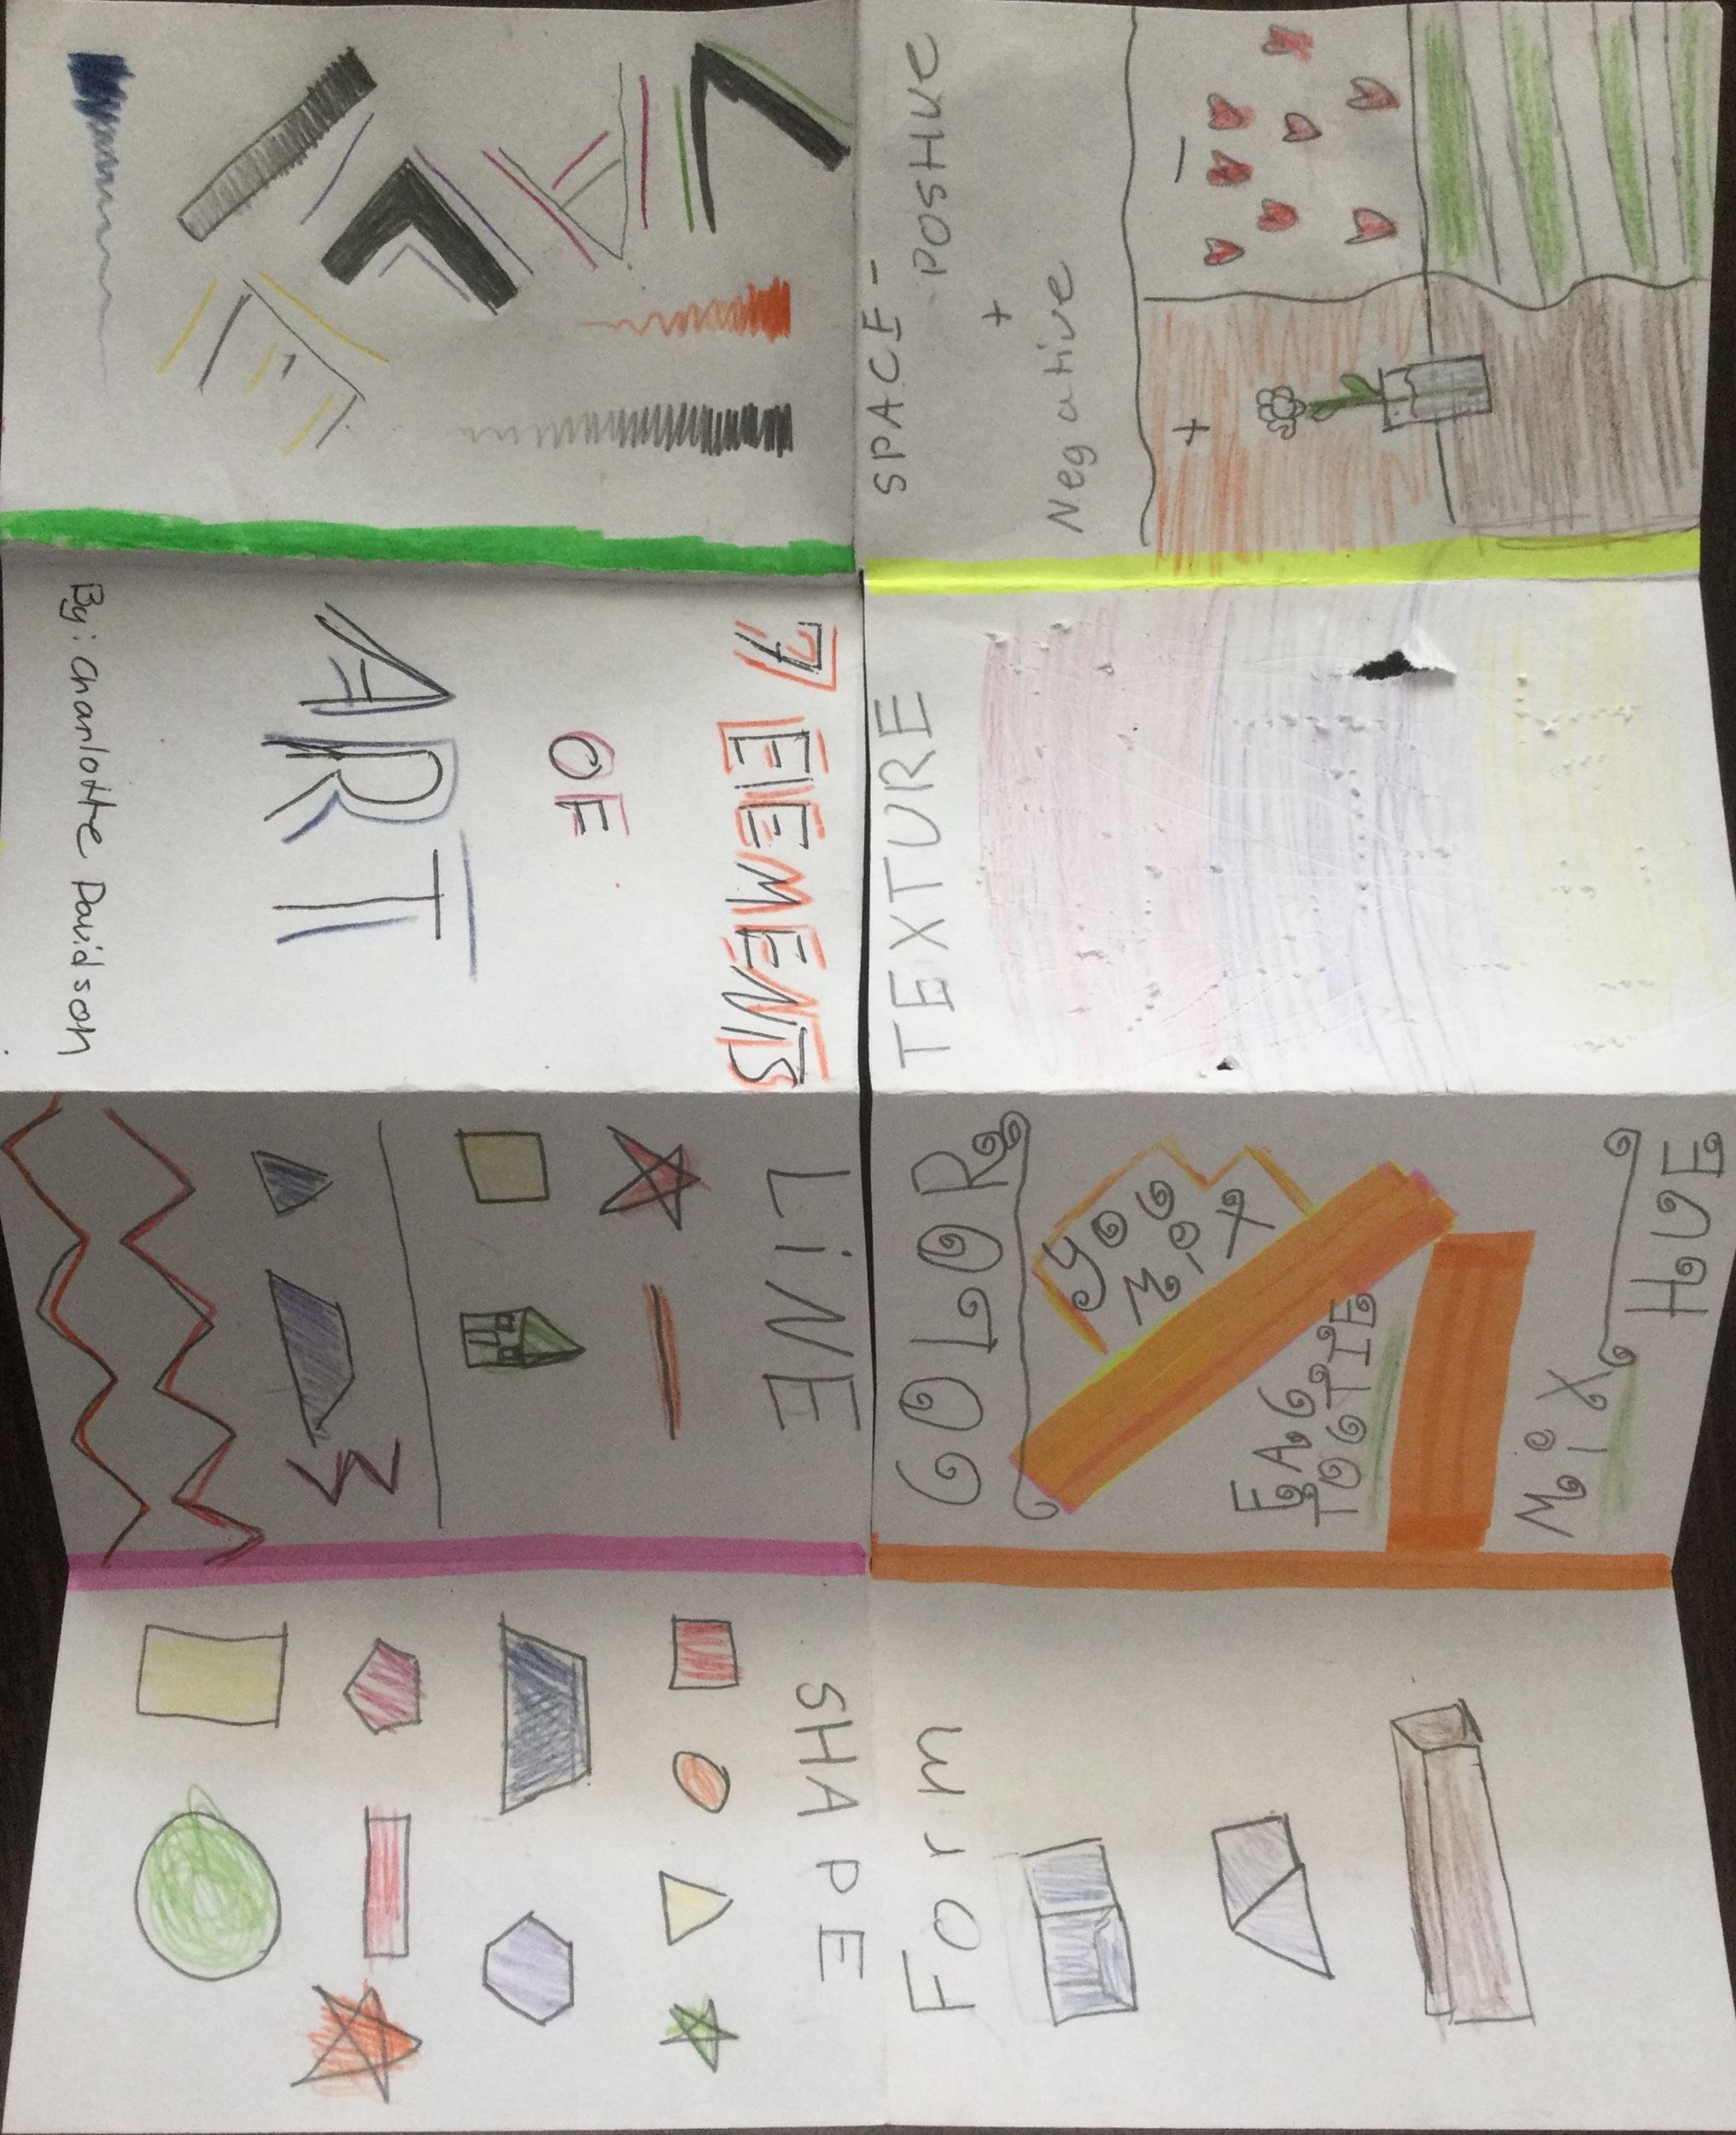 7 ELEMENTS
OF
ART
By: Charlotte Davidson
LiNE
SHAPE
Form
COLOR
YOU
MiX
MiX
HUE
TEXTURE
SPACE-
POSItIVE
+
Negative
-
+